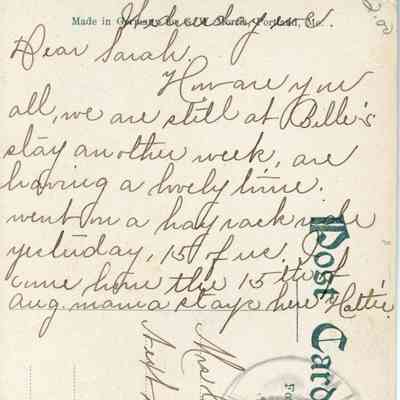 Made in Germany for G. W. Morris, Portland, Me.
2.00
Dear Sarah.
How are you
all, we are still at Belle's
stay another week, are
having a lovely time.
went on a hay rack ride
yesterday, 15 of us.
come home the 15th of
aug. mama stays here Hattie.
Post Card
Mrs